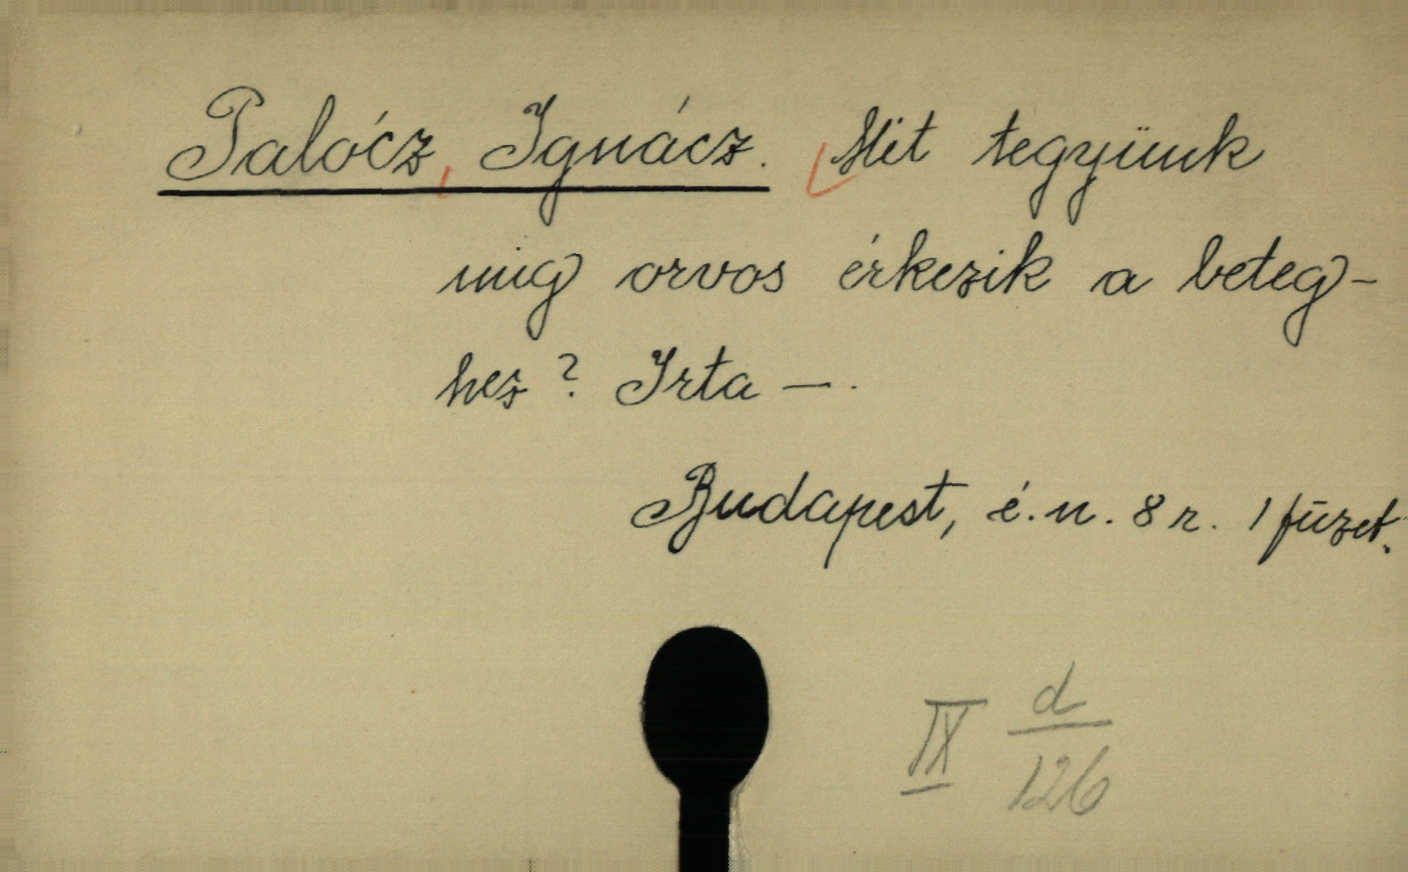 Palócz, Ignácz. Mit tegyünk
mig orvos érkezik a beteg-
hez? Irta —.
Budapest, é.n. 8 r. 1 füzet.
IX d/126